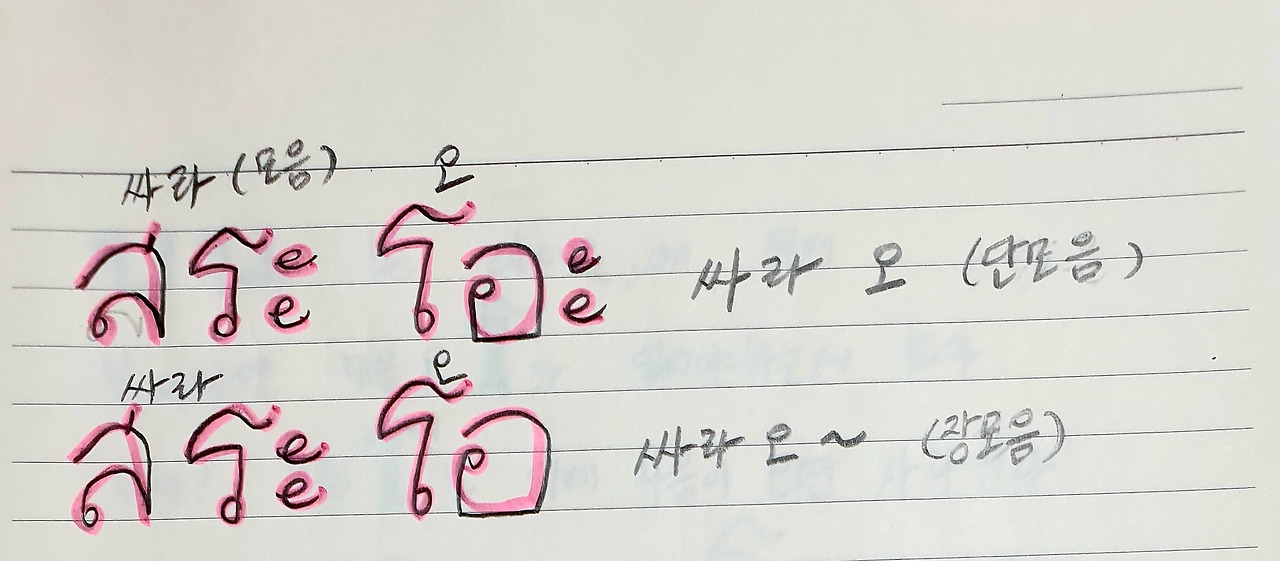 싸라 (모음) 오
สระ โอะ 싸라 오 (단모음)
싸라 오
สระ โอ 싸라 오 ~ (장모음)